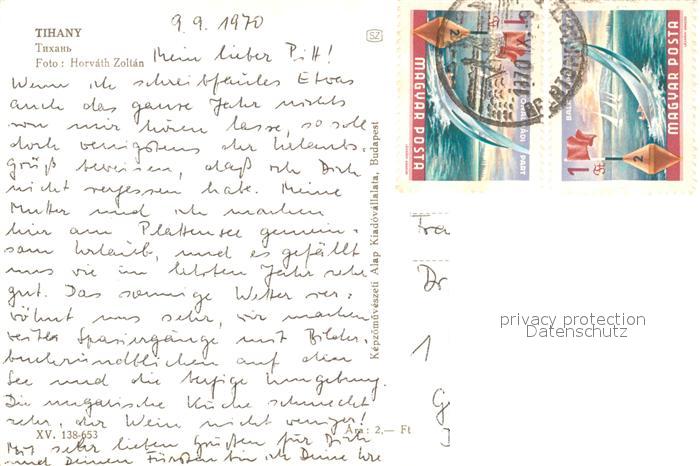 TIHANY
Тихань
Foto : Horváth Zoltán
9.9.1970
Mein lieber Pitt!
Wenn ich schreibfaules Etwas
auch das ganze Jahr nichts
von mir hören lasse, so soll
doch wenigstens der Urlaubs-
gruß beweisen, daß ich Dich
nicht vergessen habe. Meine
Mutter und ich machen
hier am Plattensee gemein-
sam Urlaub, und es gefällt
uns wie im letzten Jahr sehr
gut. Das sonnige Wetter ver-
wöhnt uns sehr, wir machen
weite Spaziergänge mit Bilder-
buchrundblicken auf den
See und die bergige Umgebung.
Die ungarische Küche schmeckt
sehr, der Wein nicht weniger!
Mit sehr lieben Grüßen für Dich
und Deinen bin ich Deine
XV. 138-653
Ára: 2,— Ft
SZ
Képzőművészeti Alap Kiadóvállalata, Budapest
MAGYAR POSTA
1
2
PART
MAGYAR POSTA
1
2
1970
Fra
Dr
1
privacy protection
Datenschutz